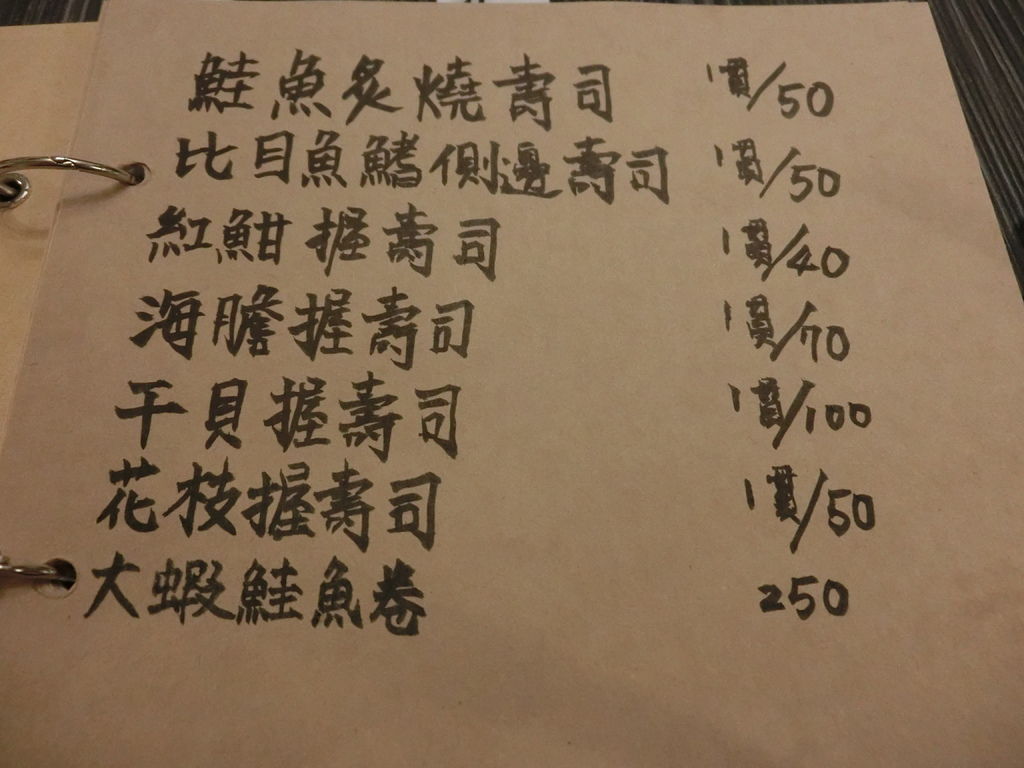 鮭魚炙燒壽司 1貫/50
比目魚鰭側邊壽司 1貫/50
紅魽握壽司 1貫/40
海膽握壽司 1貫/70
干貝握壽司 1貫/100
花枝握壽司 1貫/50
大蝦鮭魚卷 250